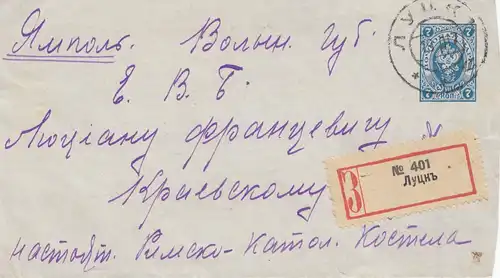 ЛУЦКЪ
7 7
Ямполь. Волын. Губ.
Е. В. Б.
Люціану Францевичу
Краевскому
З
№ 401
Луцкъ
настоят. Римско-Катол. Костела